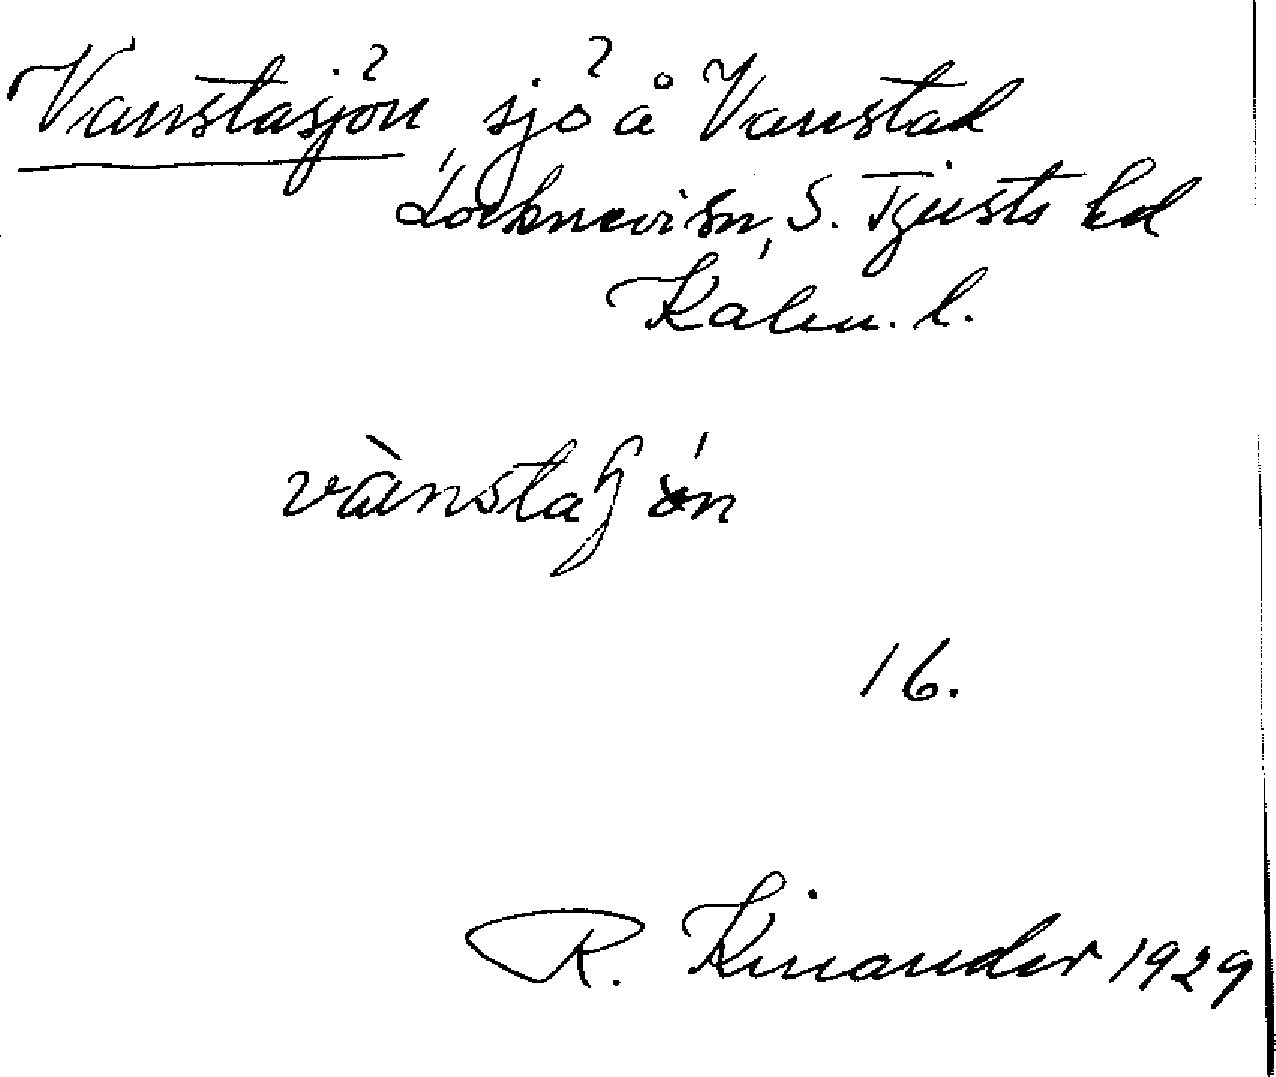 Vanstasjön, sjö å Vanstad
Locknevi sn, S. Tjusts hd
Kalm. l.
vànstaɧ ón
16.
R. Kinander 1929